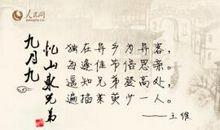 人民网
九月九
忆山東兄弟
独在异乡为异客，
每逢佳节倍思亲。
遥知兄弟登高处，
遍插茱萸少一人。
——王维